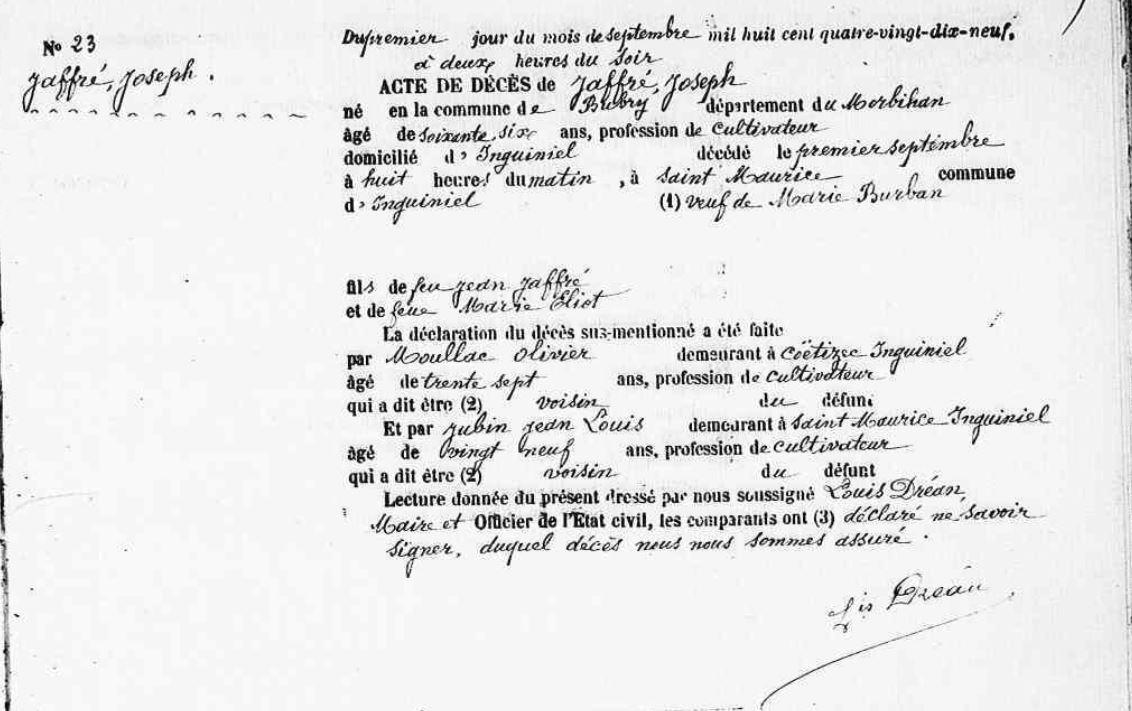 No 23
Jaffré, Joseph.
Du premier jour du mois de septembre mil huit cent quatre-vingt-dix-neuf,
à deux heures du soir
ACTE DE DÉCÈS de Jaffré, Joseph
né en la commune de Bubry département du Morbihan
âgé de soixante six ans, profession de cultivateur
domicilié d'Inguiniel décédé le premier septembre
à huit heures du matin, à Saint Maurice commune
d'Inguiniel (1) veuf de Marie Burban
fils de feu Jean Jaffré
et de feue Marie Eliot
La déclaration du décès sus-mentionné a été faite
par Moullac Olivier demeurant à Coëtizec Inguiniel
âgé de trente sept ans, profession de cultivateur
qui a dit être (2) voisin du défunt
Et par Jubin Jean Louis demeurant à Saint Maurice Inguiniel
âgé de vingt neuf ans, profession de cultivateur
qui a dit être (2) voisin du défunt
Lecture donnée du présent dressé par nous soussigné Louis Dréan
Maire et Officier de l'État civil, les comparants ont (3) déclaré ne savoir
signer, duquel décès nous nous sommes assuré.
Lis Dréan